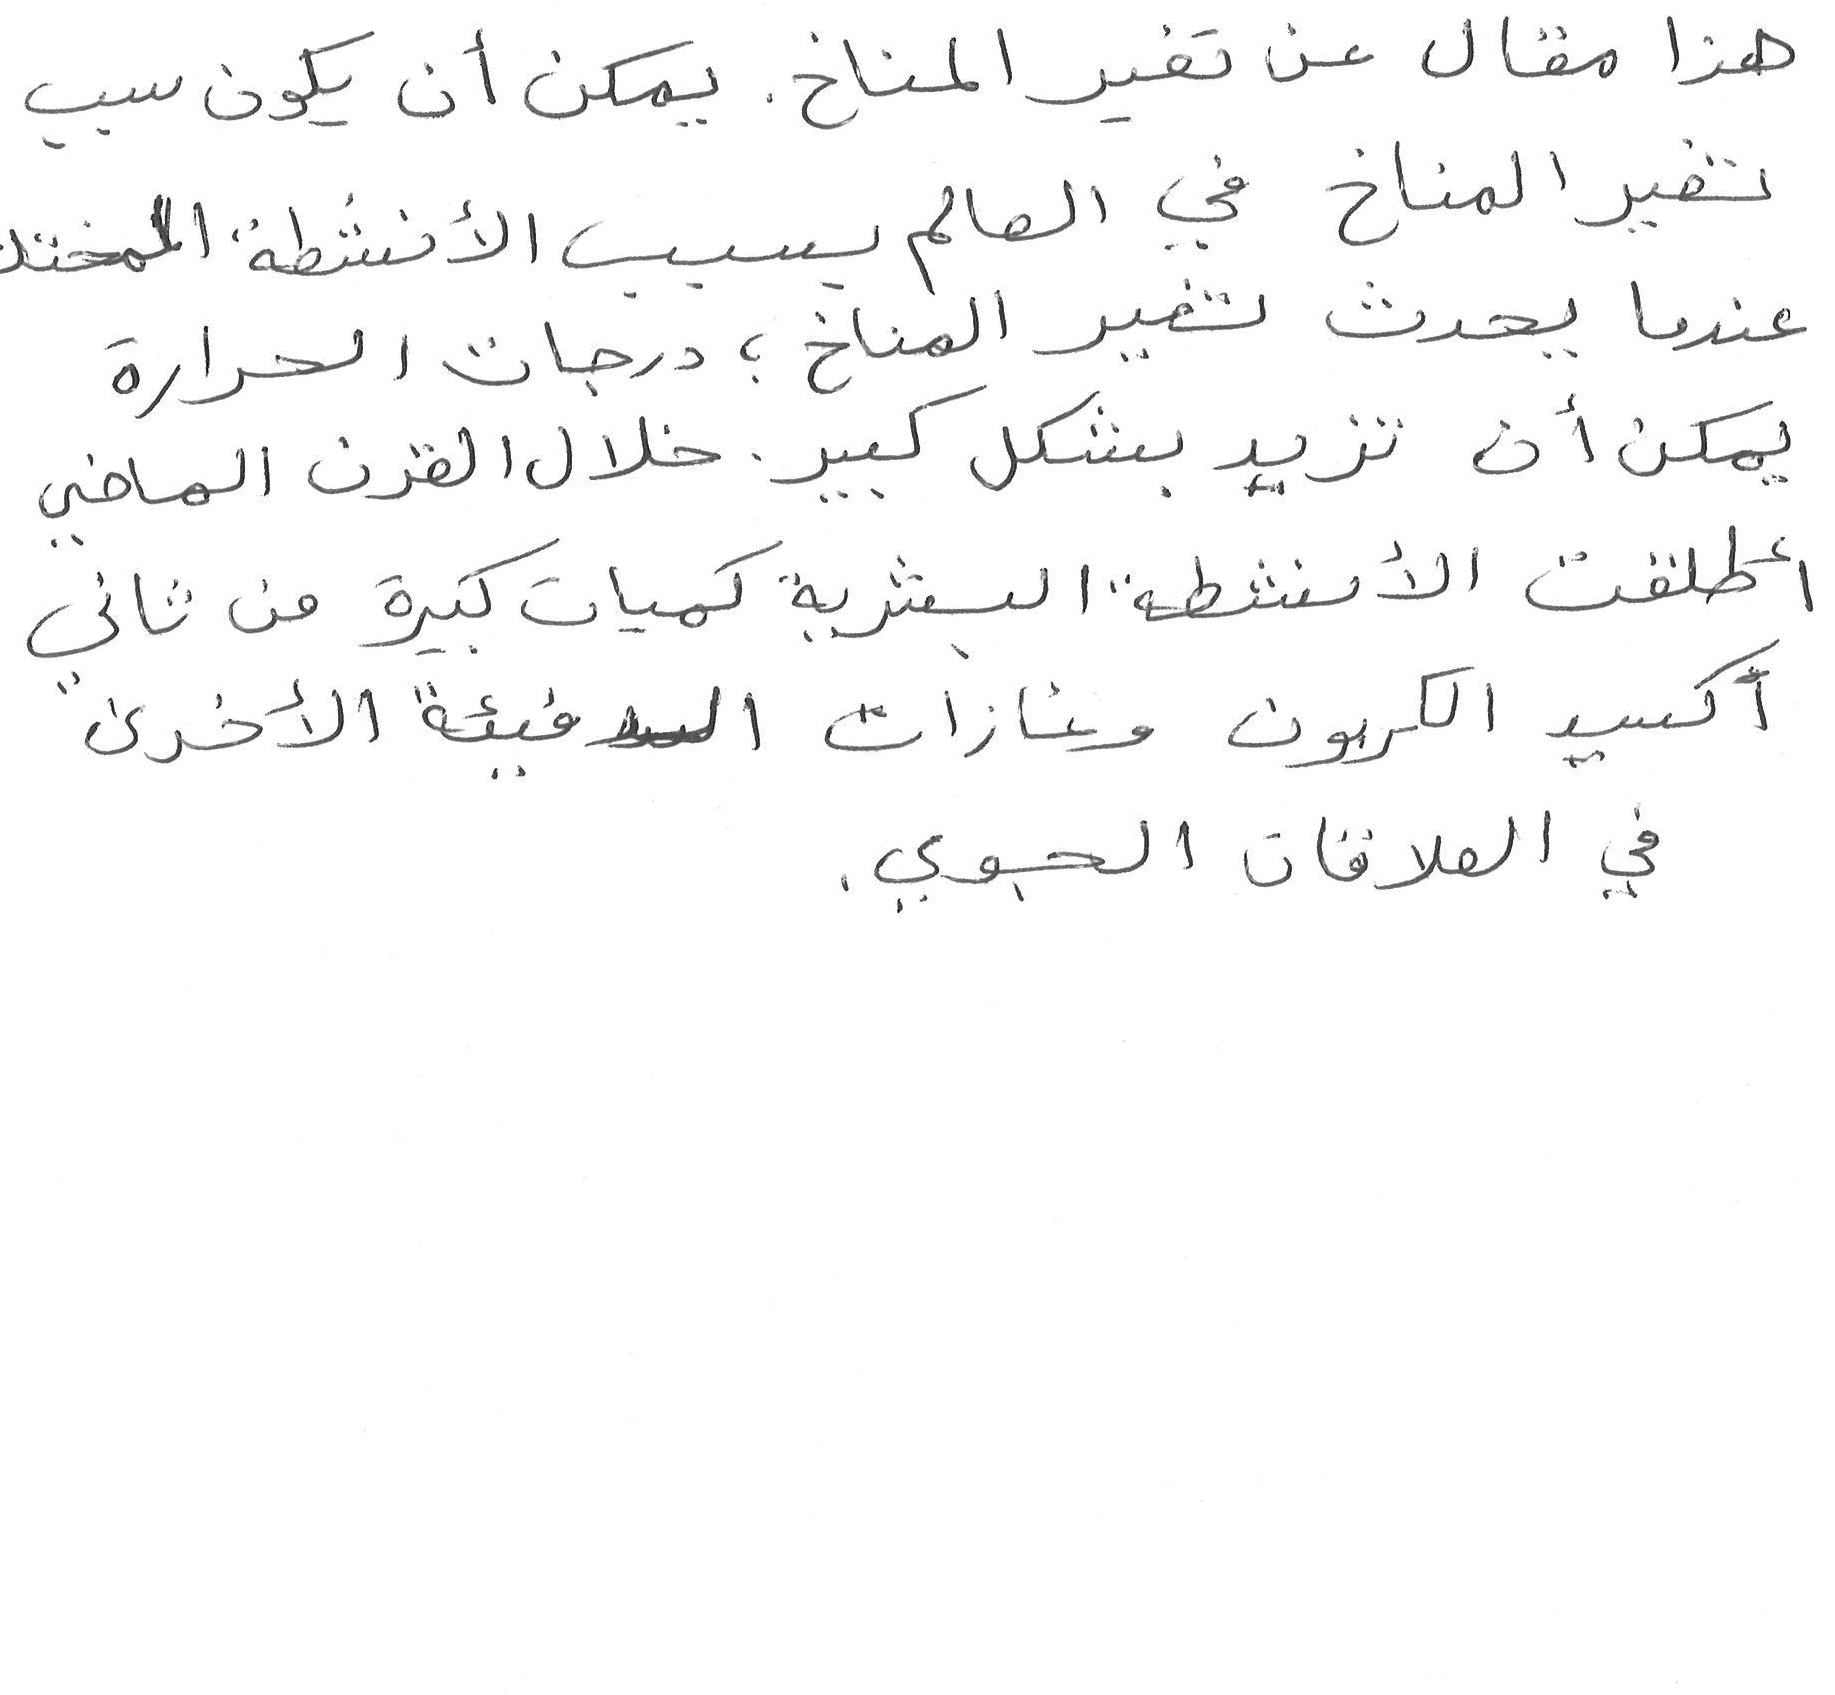 هذا مقال عن تغير المناخ. يمكن أن يكون سبب
تغير المناخ في العالم بسبب الأنشطة
عندما يحدث تغير المناخ، درجات الحرارة
يمكن أن تزيد بشكل كبير. خلال القرن الماضي
أطلقت الأنشطة البشرية كميات كبيرة من ثاني
أكسيد الكربون وغازات الدفيئة الأخرى
في العلاقات الجوي.